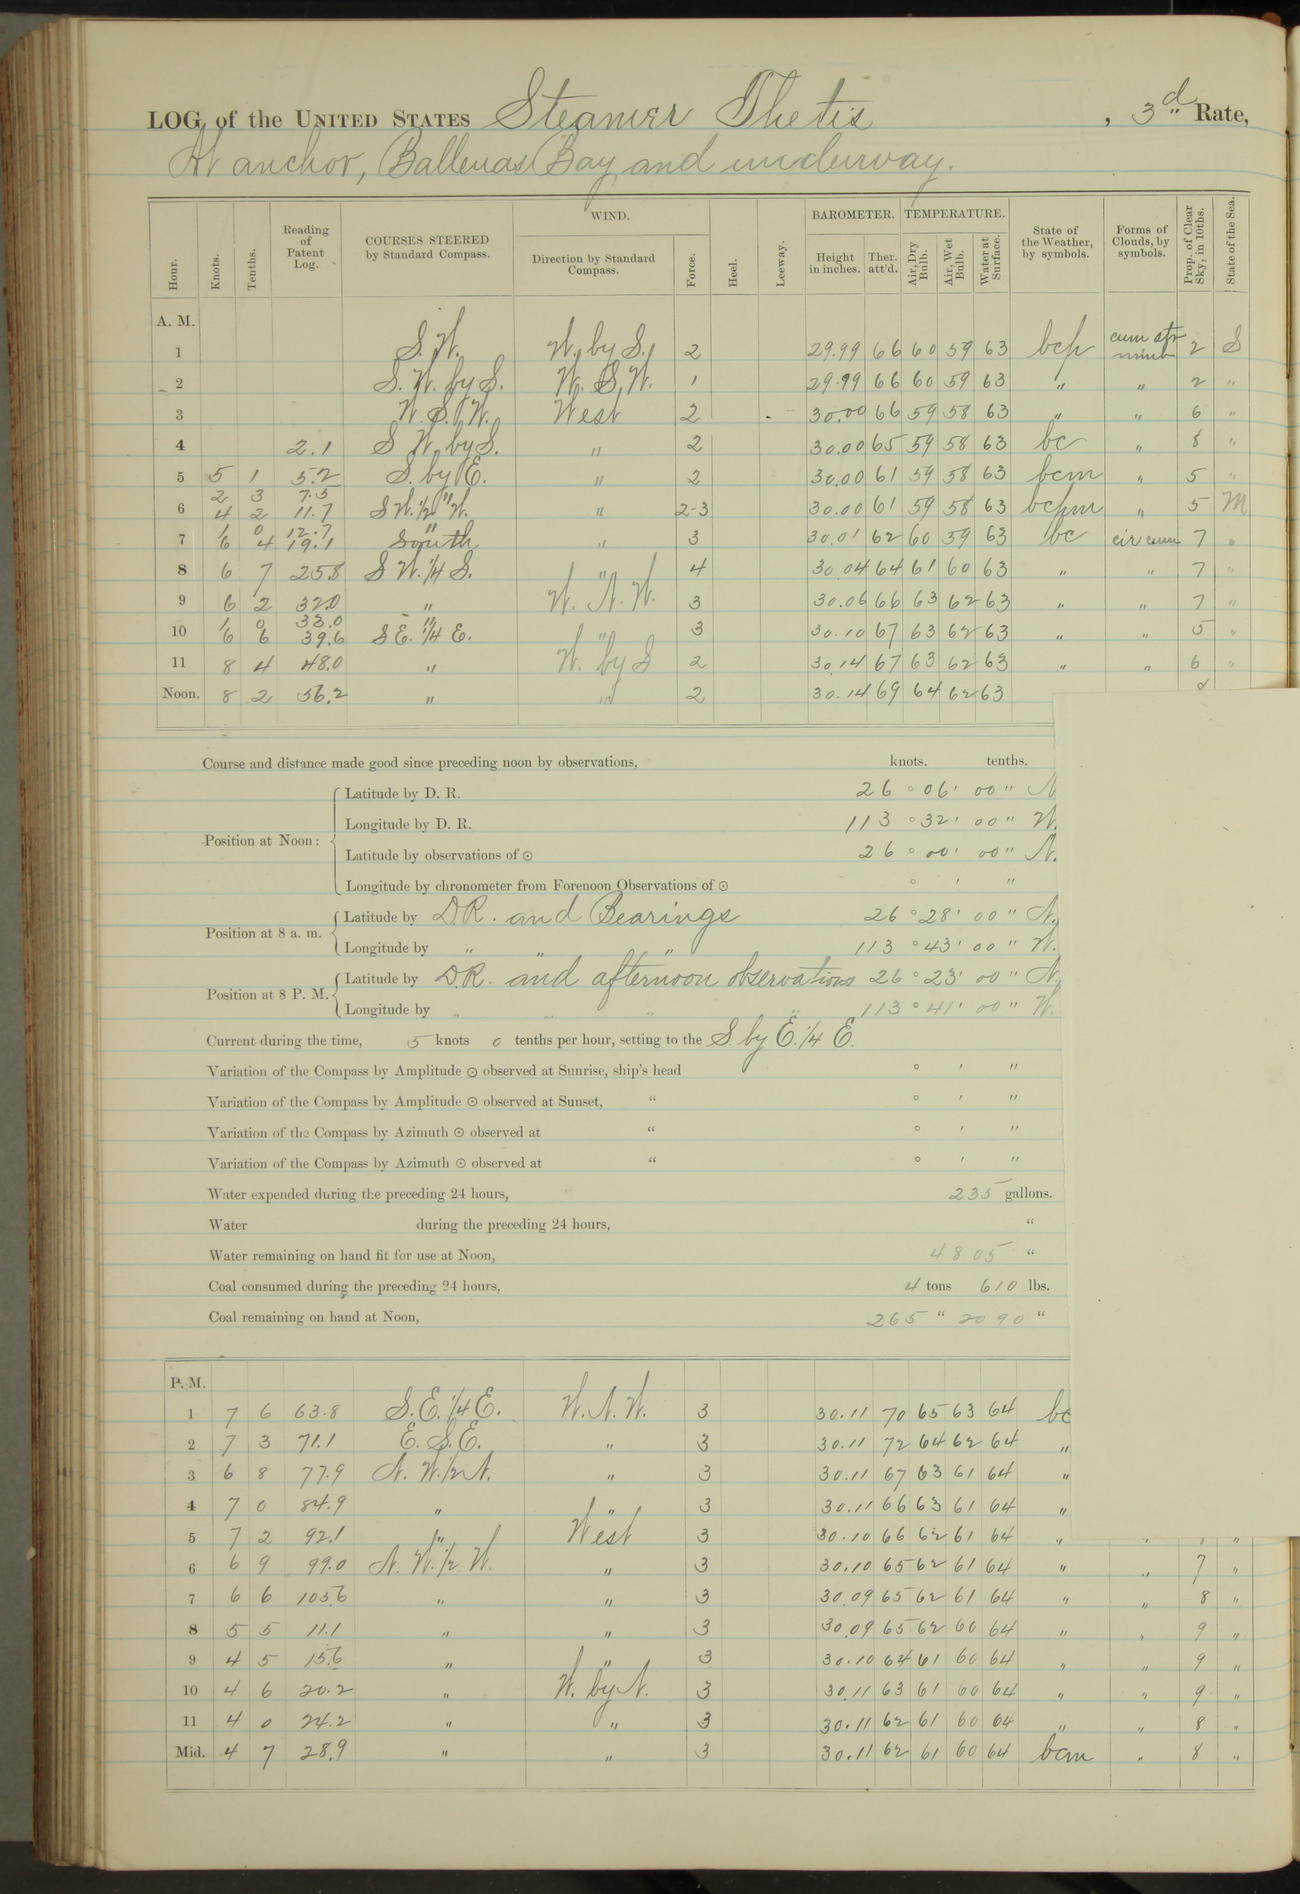 LOG of the UNITED STATES Steamer Thetis , 3d Rate,
At anchor, Ballenas Bay, and underway.
Hour. Knots. Tenths. Reading of Patent Log. COURSES STEERED by Standard Compass. WIND. Direction by Standard Compass. Force. Heel. Leeway. BAROMETER. Height in inches. Ther. att'd. TEMPERATURE. Air, Dry Bulb. Air, Wet Bulb. Water at Surface. State of the Weather, by symbols. Forms of Clouds, by symbols. Prop. of Clear Sky, in 10ths. State of the Sea.
A. M.
1 S. W. W. by S. 2 29.99 66 60 59 63 bcp cum str nimb 2 S
2 S. W. by S. W. S. W. 1 29.99 66 60 59 63 " " 2 "
3 W. S. W. West 2 30.00 66 59 58 63 " " 6 "
4 2.1 S W. by S. " 2 30.00 65 59 58 63 bc " 8 "
5 5 1 5.2 S. by E. " 2 30.00 61 59 58 63 bcm " 5 "
2 3 7.5 "
6 4 2 11.7 S W. 1/2 W. " 2-3 30.00 61 59 58 63 bcpm " 5 M
1 0 12.7 "
7 6 4 19.1 South " 3 30.01 62 60 59 63 bc cir cum 7 "
8 6 7 25.8 S W. 1/4 S. " 4 30.04 64 61 60 63 " " 7 "
9 6 2 32.0 " W. N. W. 3 30.06 66 63 62 63 " " 7 "
1 0 33.0 "
10 6 6 39.6 S E. 1/4 E. " 3 30.10 67 63 62 63 " " 5 "
11 8 4 48.0 " W. by S 2 30.14 67 63 62 63 " " 6 "
Noon. 8 2 56.2 " " 2 30.14 69 64 62 63
Course and distance made good since preceding noon by observations, knots. tenths.
Position at Noon: Latitude by D. R. 26 ° 06 ' 00 " N
Longitude by D. R. 113 ° 32 ' 00 " W.
Latitude by observations of ☉ 26 ° 00 ' 00 " N.
Longitude by chronometer from Forenoon Observations of ☉ ° ' "
Position at 8 a. m. Latitude by D.R. and Bearings 26 ° 28 ' 00 " N.
Longitude by " " " 113 ° 43 ' 00 " W.
Position at 8 P. M. Latitude by D.R. and afternoon observations 26 ° 23 ' 00 " N.
Longitude by " " " " 113 ° 41 ' 00 " W.
Current during the time, 5 knots 0 tenths per hour, setting to the S. by E. 1/4 E.
Variation of the Compass by Amplitude ☉ observed at Sunrise, ship's head ° ' "
Variation of the Compass by Amplitude ☉ observed at Sunset, " ° ' "
Variation of the Compass by Azimuth ☉ observed at " ° ' "
Variation of the Compass by Azimuth ☉ observed at " ° ' "
Water expended during the preceding 24 hours, 235 gallons.
Water during the preceding 24 hours, "
Water remaining on hand fit for use at Noon, 4805 "
Coal consumed during the preceding 24 hours, 4 tons 610 lbs.
Coal remaining on hand at Noon, 265 " 2090 "
P. M.
1 7 6 63.8 S. E. 1/4 E. W. N. W. 3 30.11 70 65 63 64 bc
2 7 3 71.1 E. S. E. " 3 30.11 72 64 62 64 "
3 6 8 77.9 N. W. 1/2 N. " 3 30.11 67 63 61 64 "
4 7 0 84.9 " " 3 30.11 66 63 61 64 "
5 7 2 92.1 " West 3 30.10 66 62 61 64 " " "
6 6 9 99.0 N. W. 1/2 W. " 3 30.10 65 62 61 64 " " 7 "
7 6 6 105.6 " " 3 30.09 65 62 61 64 " " 8 "
8 5 5 11.1 " " 3 30.09 65 62 60 64 " " 9 "
9 4 5 15.6 " " 3 30.10 64 61 60 64 " " 9 "
10 4 6 20.2 " W. by N. 3 30.11 63 61 60 64 " " 9 "
11 4 0 24.2 " " 3 30.11 62 61 60 64 " " 8 "
Mid. 4 7 28.9 " " 3 30.11 62 61 60 64 bcm " 8 "